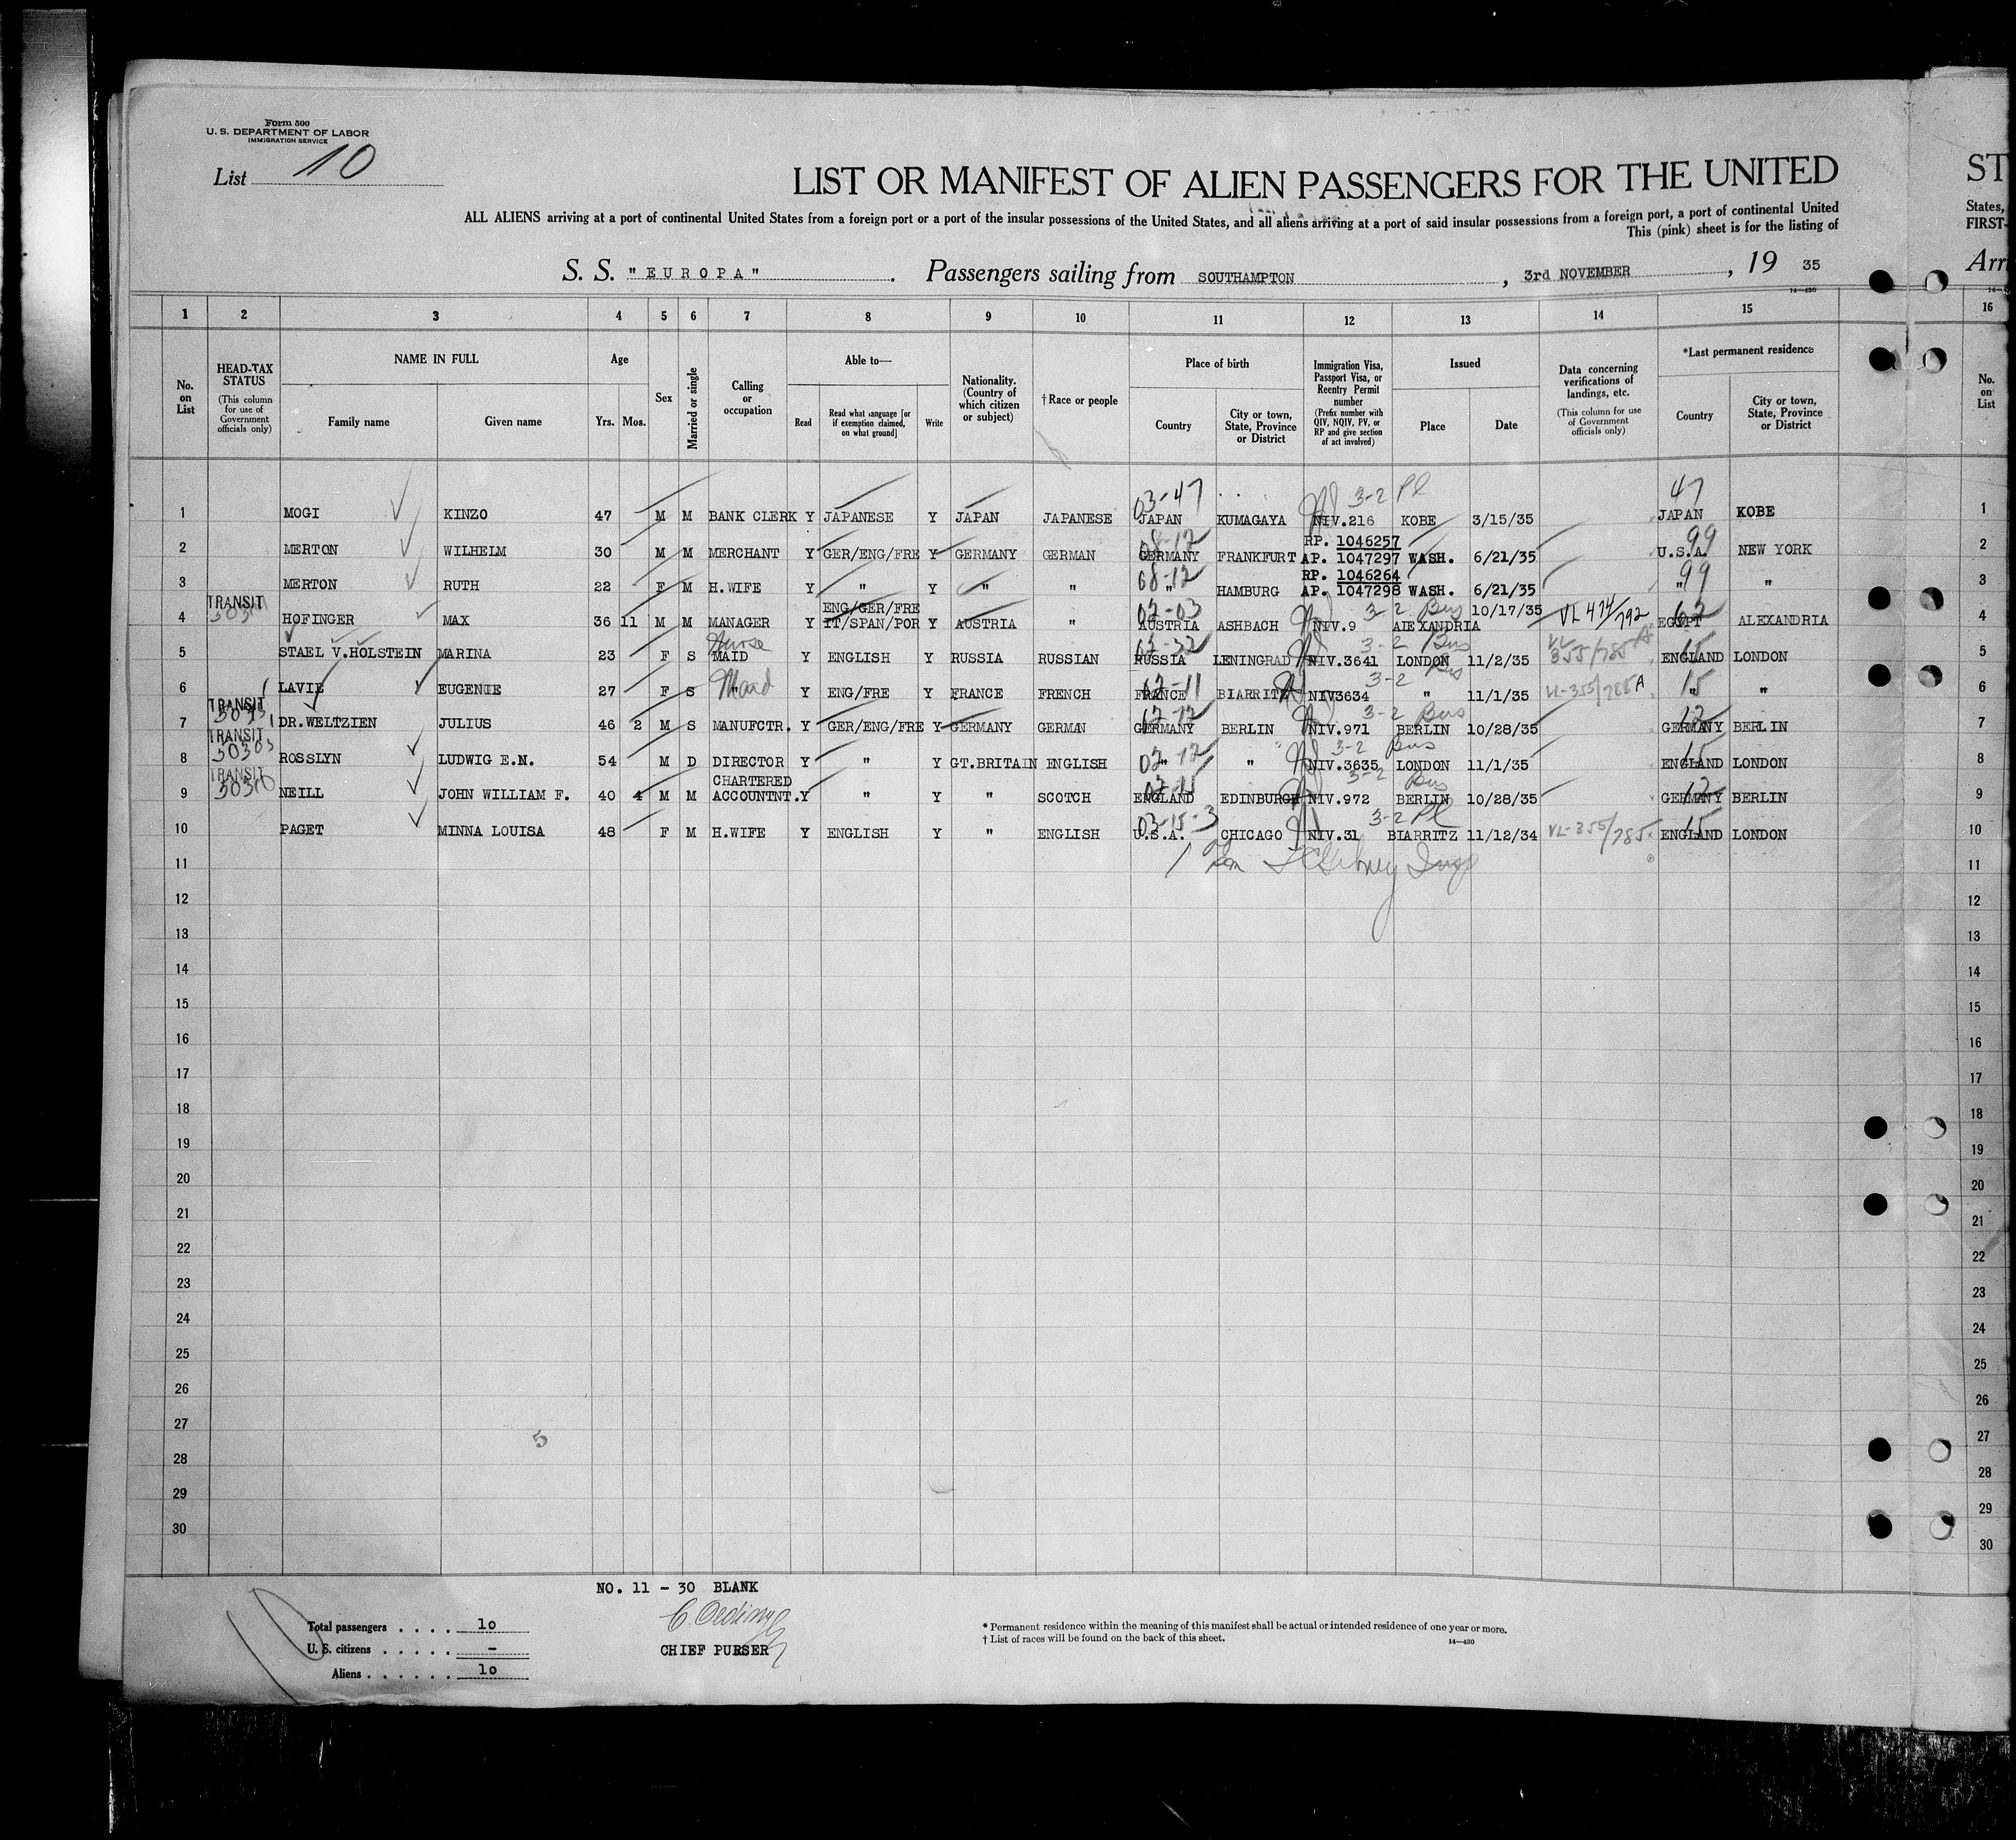 Form 500
U. S. DEPARTMENT OF LABOR
IMMIGRATION SERVICE
List 10
LIST OR MANIFEST OF ALIEN PASSENGERS FOR THE UNITED
ST
ALL ALIENS arriving at a port of continental United States from a foreign port or a port of the insular possessions of the United States, and all aliens arriving at a port of said insular possessions from a foreign port, a port of continental United
States,
This (pink) sheet is for the listing of
FIRST-
S. S. "EUROPA". Passengers sailing from SOUTHAMPTON, 3rd NOVEMBER, 19 35
Arr
14—430
1 2 3 4 5 6 7 8 9 10 11 12 13 14 15 16
No. on List
HEAD-TAX STATUS (This column for use of Government officials only)
NAME IN FULL Family name Given name
Age Yrs. Mos.
Sex
Married or single
Calling or occupation
Able to— Read Read what language [or if exemption claimed, on what ground] Write
Nationality. (Country of which citizen or subject)
† Race or people
Place of birth Country City or town, State, Province or District
Immigration Visa, Passport Visa, or Reentry Permit number (Prefix number with QIV, NQIV, PV, or RP and give section of act involved)
Issued Place Date
Data concerning verifications of landings, etc. (This column for use of Government officials only)
*Last permanent residence Country City or town, State, Province or District
No. on List
03-47 3-2 Pl 47
1 MOGI KINZO 47 M M BANK CLERK Y JAPANESE Y JAPAN JAPANESE JAPAN KUMAGAYA NIV.216 KOBE 3/15/35 JAPAN KOBE 1
08-12 RP. 1046257 99
2 MERTON WILHELM 30 M M MERCHANT Y GER/ENG/FRE Y GERMANY GERMAN GERMANY FRANKFURT AP. 1047297 WASH. 6/21/35 U.S.A. NEW YORK 2
68-12 RP. 1046264 99
3 MERTON RUTH 22 F M H.WIFE Y " Y " " " HAMBURG AP. 1047298 WASH. 6/21/35 " " 3
TRANSIT ENG/GER/FRE 02-03 3-2 Bus 62
4 HOFINGER MAX 36 11 M M MANAGER Y IT/SPAN/POR Y AUSTRIA " AUSTRIA ASHBACH NIV.9 ALEXANDRIA 10/17/35 VL 474/792 EGYPT ALEXANDRIA 4
Nurse 02-32 3-2 Bus VL 15
5 STAEL V.HOLSTEIN MARINA 23 F S MAID Y ENGLISH Y RUSSIA RUSSIAN RUSSIA LENINGRAD NIV.3641 LONDON 11/2/35 355/785 A ENGLAND LONDON 5
Maid 02-11 3-2 Bus 15
6 LAVIE EUGENIE 27 F S " Y ENG/FRE Y FRANCE FRENCH FRANCE BIARRITZ NIV3634 " 11/1/35 VL-355/785A " " 6
TRANSIT 02-12 3-2 Bus 12
7 DR.WELTZIEN JULIUS 46 2 M S MANUFCTR. Y GER/ENG/FRE Y GERMANY GERMAN GERMANY BERLIN NIV.971 BERLIN 10/28/35 GERMANY BERLIN 7
TRANSIT 02-12 3-2 Bus 15
8 ROSSLYN LUDWIG E.N. 54 M D DIRECTOR Y " Y GT.BRITAIN ENGLISH " " NIV.3635 LONDON 11/1/35 ENGLAND LONDON 8
TRANSIT CHARTERED 02-15 3-2 Bus 12
9 NEILL JOHN WILLIAM F. 40 4 M M ACCOUNTNT. Y " Y " SCOTCH ENGLAND EDINBURGH NIV.972 BERLIN 10/28/35 GERMANY BERLIN 9
03-15-3 3-2 Pl 15
10 PAGET MINNA LOUISA 48 F M H.WIFE Y ENGLISH Y " ENGLISH U.S.A. CHICAGO NIV.31 BIARRITZ 11/12/34 VL-355/785 ENGLAND LONDON 10
11 11
12 12
13 13
14 14
15 15
16 16
17 17
18 18
19 19
20 20
21 21
22 22
23 23
24 24
25 25
26 26
27 27
5
28 28
29 29
30 30
NO. 11 - 30 BLANK
Total passengers . . . . 10
U. S. citizens . . . . . -
Aliens . . . . . . 10
CHIEF PURSER
* Permanent residence within the meaning of this manifest shall be actual or intended residence of one year or more.
† List of races will be found on the back of this sheet.
14—430